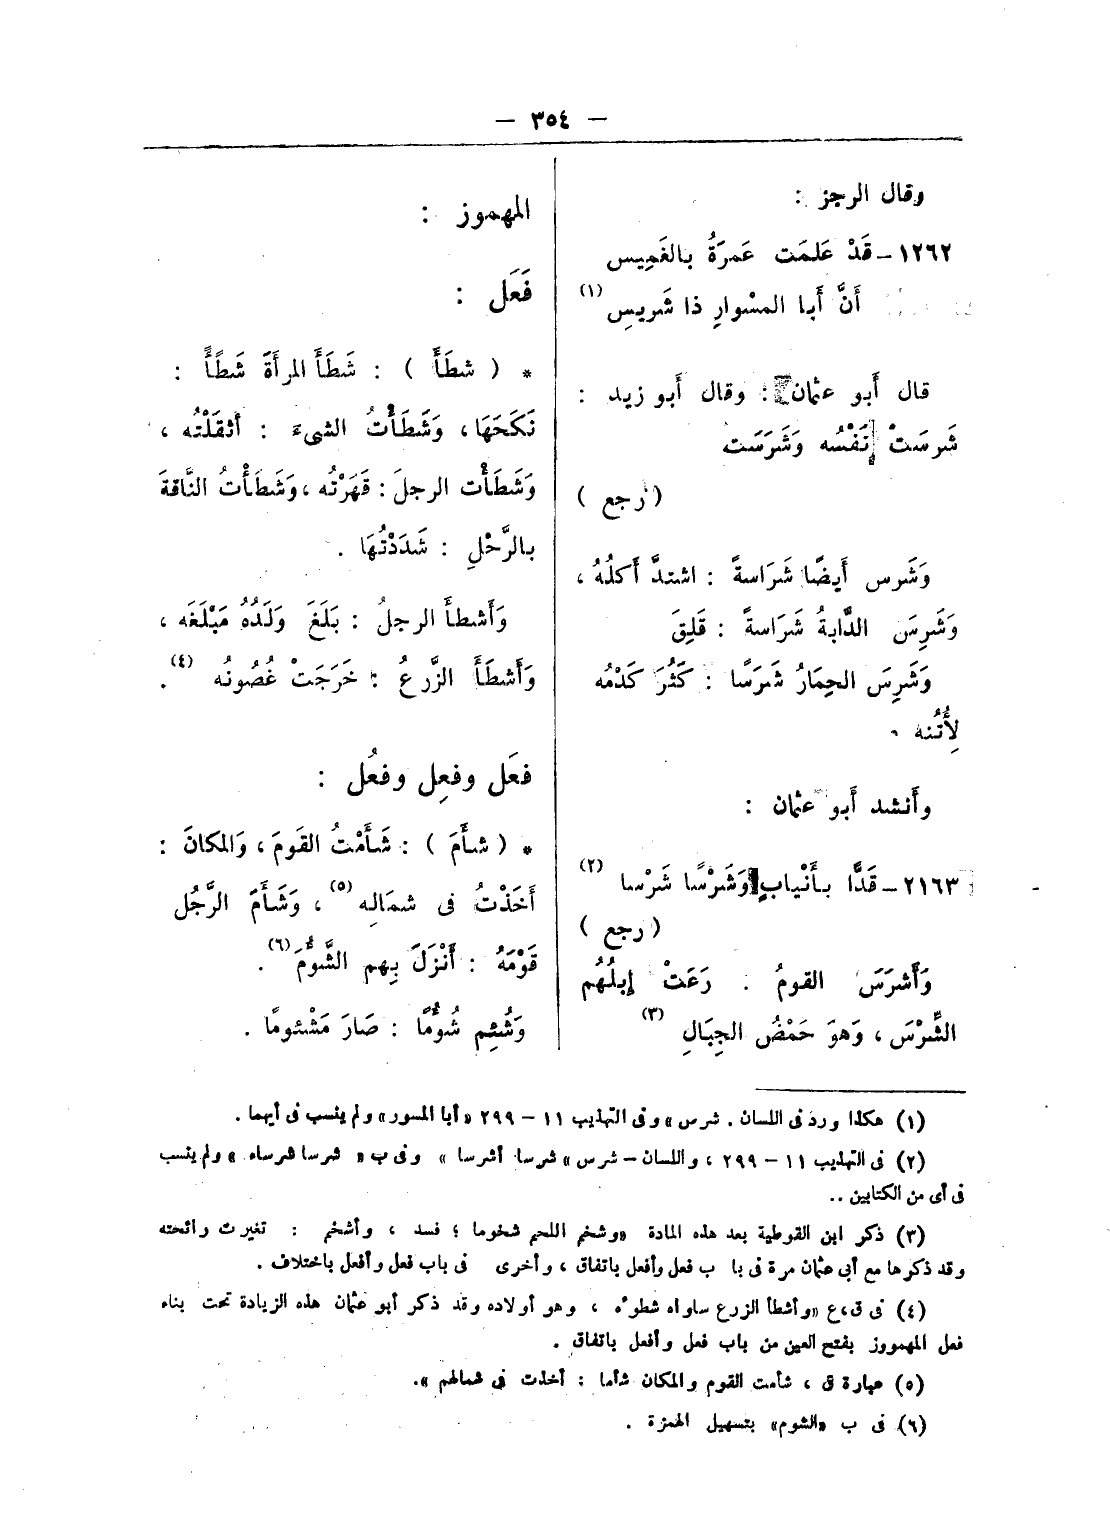 — ٣٥٤ —
وقال الرجز :
١٢٦٢ – قَدْ عَلمَت عَمرَةُ بالغَمِيس
أَنَّ أَبا المسْوارِ ذا شَريسِ (١)
قال أَبو عثمان : وقال أَبو زيد :
شَرسَتْ نَفْسُه وَشَرَسَت
( رجع )
وَشَرس أَيضًا شَرَاسةً : اشتدَّ أَكلُهُ ،
وَشَرِسَ الدَّابةُ شَرَاسةً : قَلِقَ
وَشَرِسَ الحِمَارُ شَرَسًا : كَثُرَ كَدْمُه
لِأُتُنه .
وأَنشد أَبو عثمان :
٢١٦٣ – قَدًّا بأَنْيابٍ وَشَرْسًا شَرْسا (٢)
( رجع )
وَأَشرَسَ القومُ . رَعَتْ إبلُهُم
الشِّرْسَ ، وَهوَ حَمْضُ الجِبَالِ (٣)
المهموز :
فَعَل :
* ( شطَأَ ) : شَطَأَ المرأَةَ شَطًأً :
نَكَحَهَا ، وَشَطَأْتُ الشىءَ : أثقَلْتُه ،
وَشَطَأْت الرجلَ : قَهَرْتُه ، وَشَطَأْتُ النَّاقةَ
بالرَّحْلِ : شَدَدْتُهَا .
وَأَشطأَ الرجلُ : بَلَغَ وَلَدُهُ مَبْلَغَه ،
وَأَشطَأَ الزَّرعُ : خَرَجَتْ غُصُونُه (٤) .
فعَل وفعِل وفعُل :
* ( شأَمَ ) : شَأَمْتُ القَومَ ، وَالمكانَ :
أَخَذْتُ فى شمَالِه (٥) ، وَشَأَمَ الرَّجُل
قَوْمَهُ : أَنْزَلَ بِهم الشُّؤْمَ (٦) .
وَشُئِم شُؤمًا : صَارَ مَشْئومًا .
(١) هكذا ورد فى اللسان . شرس » وفى التهذيب ١١ – ٢٩٩ « أبا المسور » ولم ينسب فى أيهما .
(٢) فى التهذيب ١١ – ٢٩٩ ، واللسان – شرس « شرسا أشرسا » وفى ب « شرسا شرساء » ولم ينسب
فى أى من الكتابين ..
(٣) ذكر ابن القوطية بعد هذه المادة « وشخم اللحم شخوما ؛ فسد ، وأشخم : تغيرت رائحته
وقد ذكرها مع أبى عثمان مرة فى باب فعل وأفعل باتفاق ، وأخرى فى باب فعل وأفعل باختلاف .
(٤) فى ق ، ع « وأشطأ الزرع ساواه شطوءه ، وهو أولاده وقد ذكر أبو عثمان هذه الزيادة تحت بناء
فعل المهمووز بفتح العين من باب فعل وأفعل باتفاق .
(٥) عبارة ق ، شأمت القوم والمكان شأما : أخذت فى شمالهم » .
(٦) فى ب « الشوم » بتسهيل الهمزة .